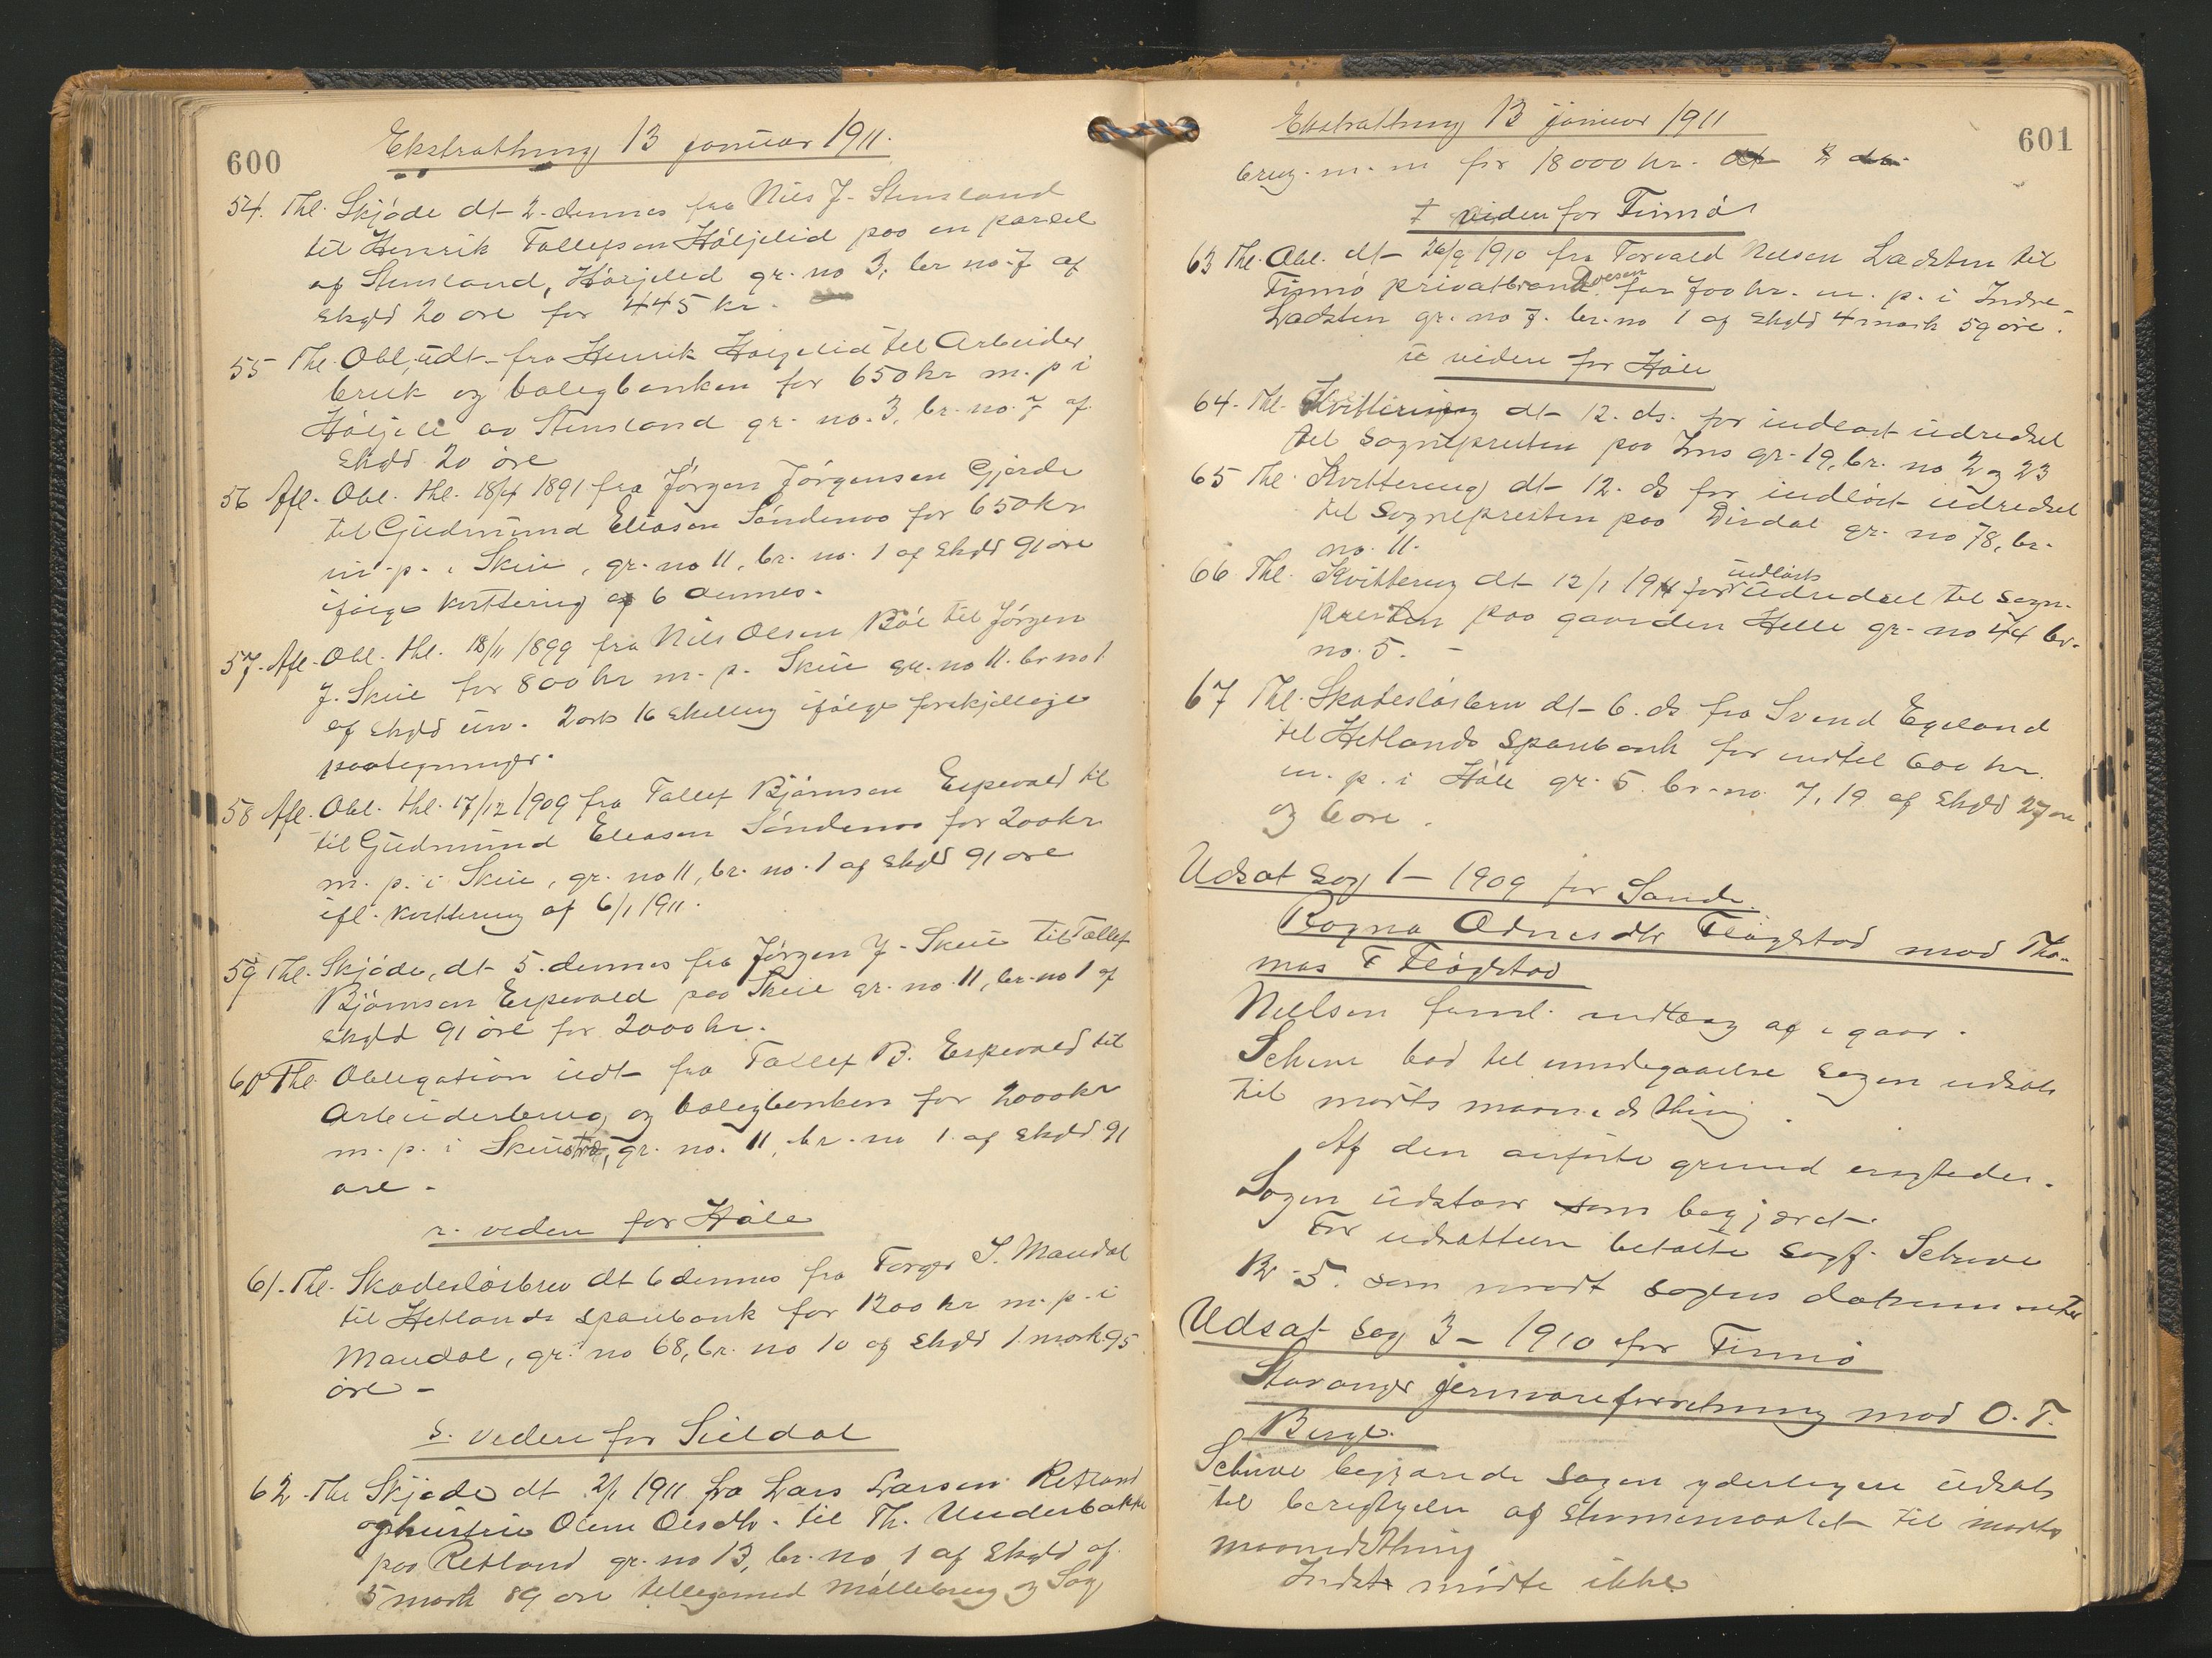 600
Ekstrathing 13 januar 1911.
54. Thl. Skjøde dt 2. dennes fra Nils J. Stensland
til Henrik Tollefsen Høljelid paa en parsel
af Stensland, Høijelid gr. no 3, br no. 7 af
skyld 20 øre for 445 kr.
55 Thl. Obl. udt. fra Henrik Høigelid til Arbeider
bruk og boligbanken for 650 kr m. p i
Høijeli av Stensland gr. no. 3, br. no. 7 af
skyld 20 øre
56 Afl. Obl. thl. 18/4 1891 fra Jørgen Jørgensen Gjerde
til Gudmund Eliasen Søndenaa for 650 kr
m. p. i Skeie, gr. no 11, br. no. 1 af skyld 91 øre
ifølge kvittering af 6 dennes.
57. Afl. Obl. thl. 18/11 1899 fra Nils Olsen Bøe til Jørgen
J. Skeie for 800 kr m. p. Skeie gr. no 11. br no 1
af skyld urv. 2 ort 16 skilling ifølge forskjellige
paategninger.
58 Afl. Obl. thl. 17/12 1909 fra Tollef Bjørnsen Espevold til
til Gudmund Eliasen Søndenaa for 200 kr
m. p. i Skeie, gr. no 11, br. no. 1 af skyld 91 øre
ifl. kvittering af 6/1 1911.
59 Thl. Skjøde, dt 5. dennes fra Jørgen J. Skeie til Tollef
Bjørnsen Espevold paa Skeie gr. no. 11, br. no 1 af
skyld 91 øre for 2000 kr.
60 Thl. Obligation udt fra Tollef B. Espevold til
Arbeiderbrug og boligbanken for 2000 kr
m. p. i Skeie, gr. no. 11, br. no 1 af skyld 91
øre.
r. viden for Høle
61. Thl. Skadesløsbrev dt 6 dennes fra Torger S. Maudal
til Hetlands sparebank for 1200 kr m. p. i
Maudal, gr. no 68, br. no 10 af skyld 1 mark 95
øre
s. videre for Sieldal
62 Thl Skjøde dt 2/1 1911 fra Lars Larsen Retland
og hustru Olene Olsdtr. til Th. Underbakke
paa Retland gr. no 13, br. no 1 af skyld af
5 mark 89 øre tilligemed Møllebrug og Sag
601
Ekstrathing 13 januar 1911
brug. m. m for 18000 kr.
t viden for Finnø
63 Thl. Obl. dt 26/9 1910 fra Torvald Nilsen Ladsten til
Finnø privatbrand for 700 kr. m. p. i Indre
Ladsten gr. no 7. br. no 1 af skyld 4 mark 59 øre.
u viden for Høle
64. Thl. Kvittering dt 12. ds. for indløst udredsel
til sognepresten paa Ims gr. 19, br. no 2 og 23
65 Thl Kvittering dt 12. ds for indløst udredsel
til sognepresten paa Dirdal gr. no 78, br.
no. 11.
66 Thl. Kvittering dt 12/1 1911 for indløst udredsel til sogne
presten paa gaarden Helle gr. no 44 br.
no. 5.
67 Thl. Skadesløsbrev dt 6. ds fra Svend Egeland
til Hetlands sparebank for indtil 600 kr.
m. p. i Høle gr. 5. br. no. 7, 19 af skyld 27 øre
og 6 øre.
Udsat sag 1 - 1909 for Sande.
Ragna Odnesdtr Fløgstad mod Tho-
mas T Fløgstad
Nielsen freml. indtæg af i gaar.
Schive bad til imødegaaelse sagen udsat
til marts maaneds thing.
Af den anførte grund eragtedes.
Sagen udstaar som begjært.
For udsættelsen betalte sagf. Schive
Kr 5. som modt sagens dokumenter
Udsat sag 3 - 1910 for Finnø
Stavanger jernvareforretning mod O. T.
Berge.
Schive begjærede sagen yderligere udsat
til berigtigelse af stevnemaalet til marts
maanedsthing
Indst mødte ikke